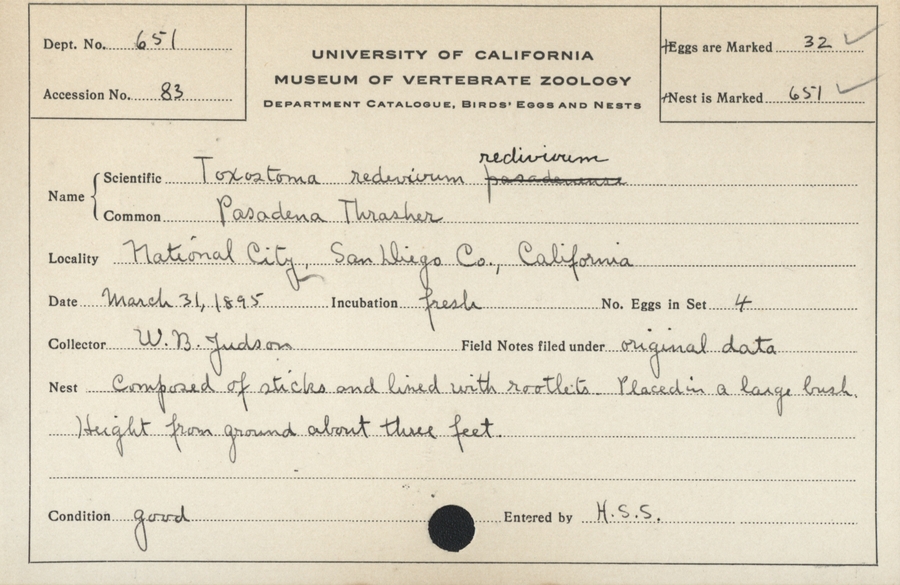 Dept. No. 651
Accession No. 83
UNIVERSITY OF CALIFORNIA
MUSEUM OF VERTEBRATE ZOOLOGY
DEPARTMENT CATALOGUE, BIRDS' EGGS AND NESTS
Eggs are Marked 32 ✓
Nest is Marked 651 ✓
redivivum
Name { Scientific Toxostoma redivivum pasadenense
Common Pasadena Thrasher
Locality National City, San Diego Co., California
Date March 31, 1895 Incubation fresh No. Eggs in Set 4
Collector W. B. Judson Field Notes filed under original data
Nest Composed of sticks and lined with rootlets. Placed in a large bush.
Height from ground about three feet.
Condition good Entered by H.S.S.